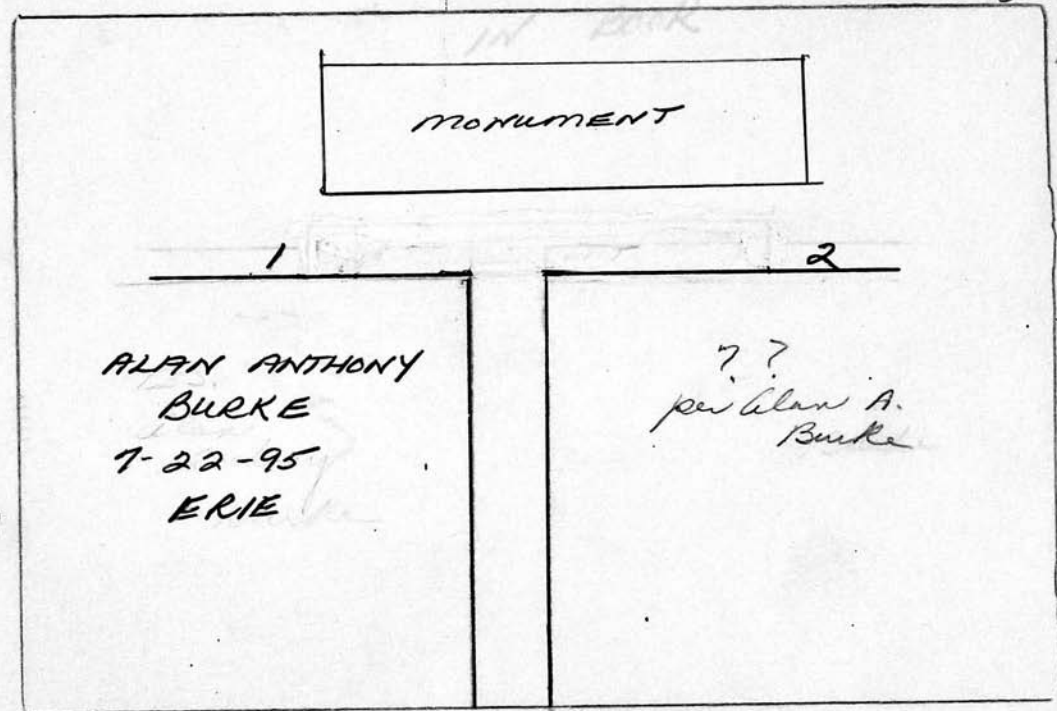 IN BOOK
MONUMENT
1
2
ALAN ANTHONY
BURKE
7-22-95
ERIE
? ?
per Alan A.
Burke